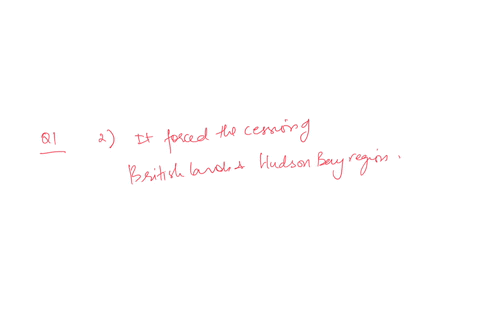 Q1 2) It forced the cession of
British lands + Hudson Bay region.